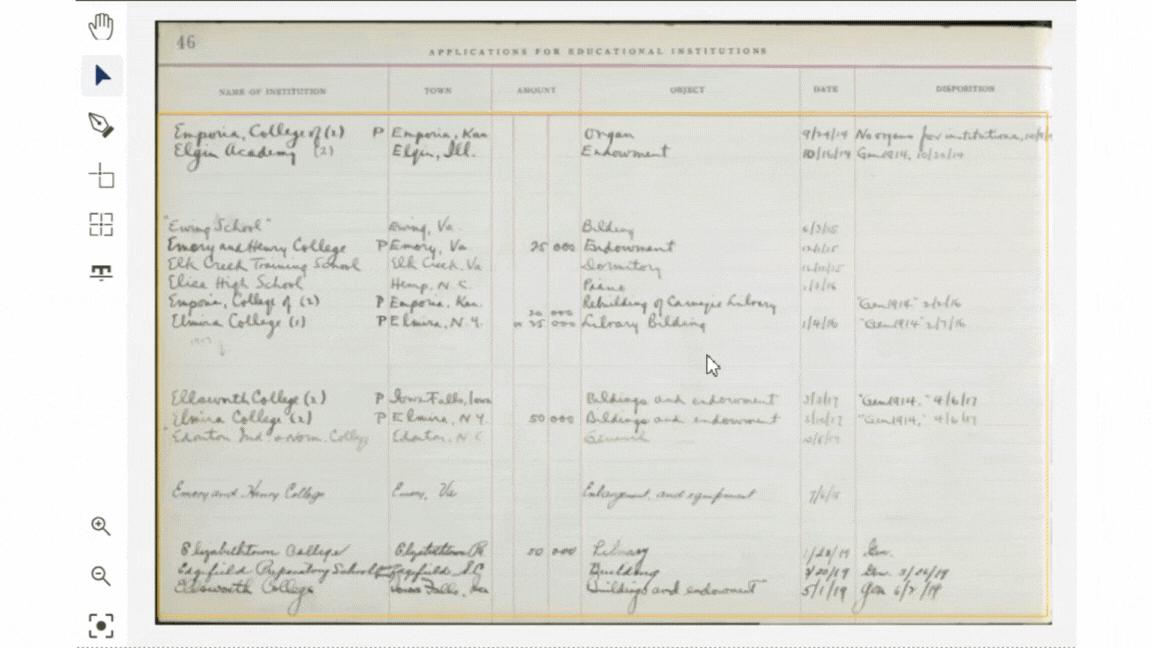 46
APPLICATIONS FOR EDUCATIONAL INSTITUTIONS
NAME OF INSTITUTION TOWN AMOUNT OBJECT DATE DISPOSITION
Emporia, College of (2) P Emporia, Kan Organ 9/24/14 No organs for institutions,
Elgin Academy (2) Elgin, Ill. Endowment 10/16/14 Gen1914, 10/20/14
"Ewing School" Ewing, Va. Bilding 6/3/15
Emory and Henry College P Emory, Va 25 000 Endowment
Elk Creek Training School Elk Creek, Va Dormitory
Elise High School Hemp, N.C. Piano
Emporia, College of (2) P Emporia, Kan. Rebuilding of Carnegie Library "Gen1914"
20 000
Elmira College (1) P Elmira, N.Y. or 25 000 Library Bilding 1/4/16 "Gen1914" 2/7/16
Ellsworth College (2) P Iowa Falls, Iowa Bildings and endowment "Gen1914," 4/6/17
Elmira College (2) P Elmira, N.Y. 50 000 Bildings and endowment "Gen1914," 4/6/17
Edenton Ind & Norm. College Edenton, N.C. General
Emory and Henry College Emory, Va Enlargement, and equipment
Elizabethtown College Elizabethtown Pa 50 000 Library 1/28/19 Gen.
Edgefield Preparatory School Edgefield S.C. Building Gen.
Ellsworth College Iowa Falls, Buildings and endowment 5/1/19 Gen